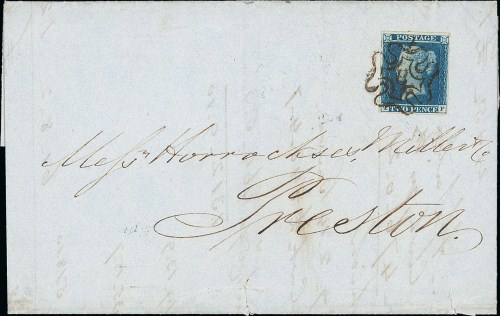 POSTAGE
TWO PENCE
Messrs Horrockses, Miller & Co
Preston.